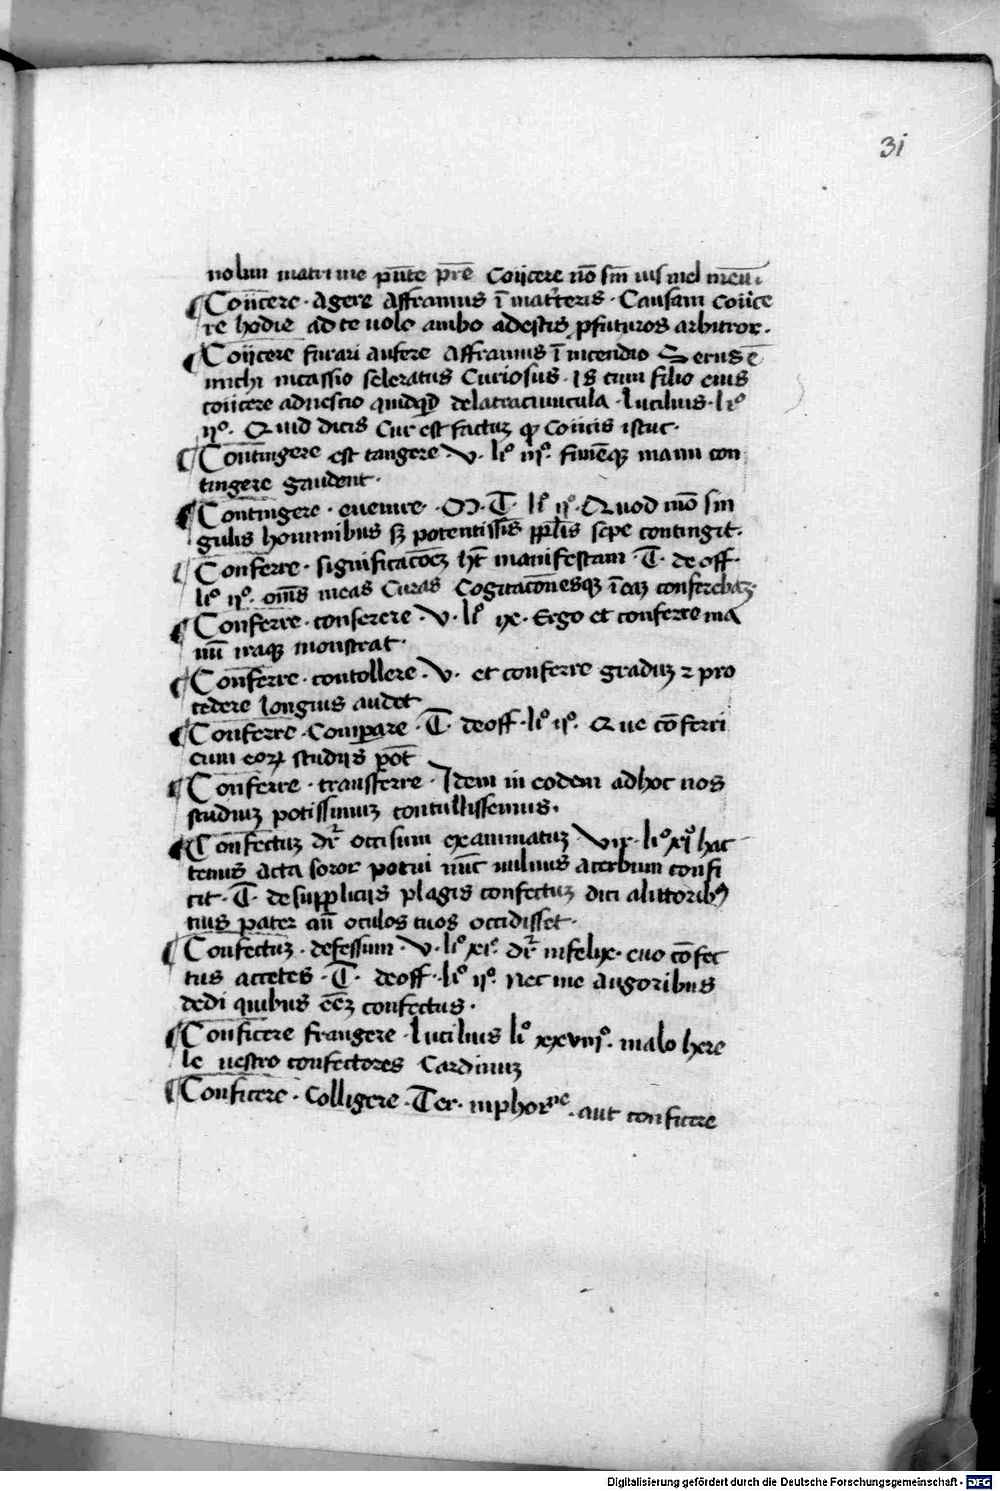 31
nolun matri me pñte pr̄e Coijcere nō sm̄ uis mel
¶ Coiicere · agere Affranius ī mat̄teris · Causam coiice
re hodie ad te uolo ambo adestis ꝓfuturos arbitror ·
¶ Coijcere furari aufere Affranius ī incendio Seruus ē
michi nicassio sceleratus Curiosus · Is cum filio eius
coiicere ad nescio quidqꝫ delatraciuncula · Lucilius · liº
ijº · Quid dicis Cur est factuꝫ qꝫ coiicis istuc ·
¶ Contingere est tangere · V · liº iijº · funēqꝫ manu con
tingere gaudent ·
¶ Contingere · euenire · M · T · liº ijº · Quod nō sin
gulis hominibus sꝫ potentissīs ppl̄is sepe contingit ·
¶ Conferre · significacōeꝫ ht̄ manifestam · T · de off ·
liº ijº · om̄s meas Curas Cogitacōnesqꝫ ī eaꝫ conferebaꝫ ·
¶ Conferre · conserere · V · liº ix · Ergo et conferre ma
nū iraqꝫ monstrat ·
¶ Conferre · contollere · V · et conferre graduꝫ ⁊ pro
cedere longius audet
¶ Conferre · Comparare · T · de off · liº ijº · Que cōferri
cum eoꝝ studijs pōt
¶ Conferre · transferre · Idem in eodem ad hoc nos
studiuꝫ potissimuꝫ contulissemus ·
¶ Confectuꝫ dr̄ occisum exanimatuꝫ · Vir · liº xiº hac
tenus acta soror potui nūc uulnus acerbum confi
cit · T · de supplicijs plagis confectuꝫ dici a lictoribꝰ
tius pater añ oculos tuos occidisset ·
¶ Confectuꝫ · defessum · V · liº xiº · dr̄ infelix · euo cōfec
tus accetes · T · de off · liº ijº · nec me angoribus
dedi quibus eēꝫ confectus ·
¶ Conficere frangere · Lucilius liº xxviijº · malo herc
le uestro confectores Cardinuꝫ
¶ Conficere · Colligere · Ter · in phorne · aut conficere
Digitalisierung gefördert durch die Deutsche Forschungsgemeinschaft - DFG